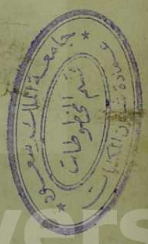 جامعة الملك سعود
قسم المخطوطات
عمادة شؤون المكتبات
vers